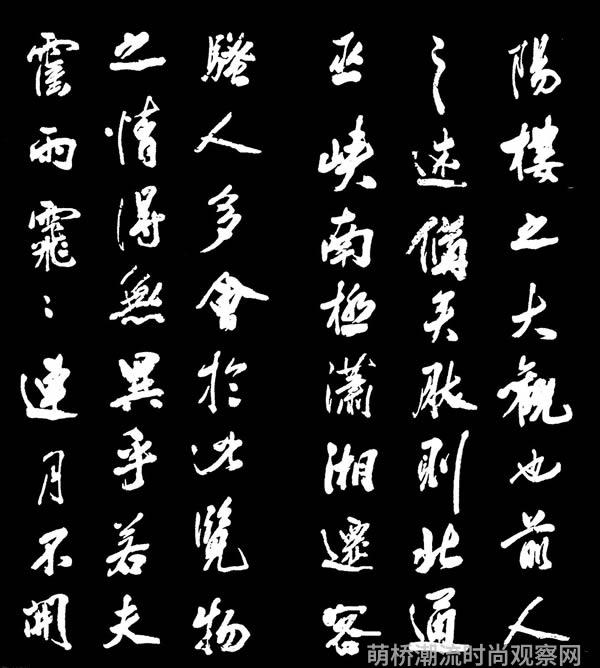 陽樓之大觀也前人
之述備矣然則北通
巫峽南極瀟湘遷客
騷人多會於此覽物
之情得無異乎若夫
霪雨霏〻連月不開
萌桥潮流时尚观察网